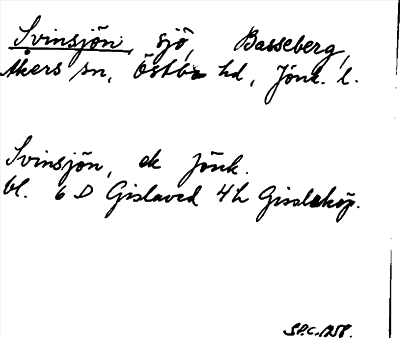 Svinsjön, sjö, Basseberg,
Åkers sn, Östbo hd, Jönk. l.
Svinsjön, ek Jönk.
bl. 6 D Gislaved 4h Gisslaköp.